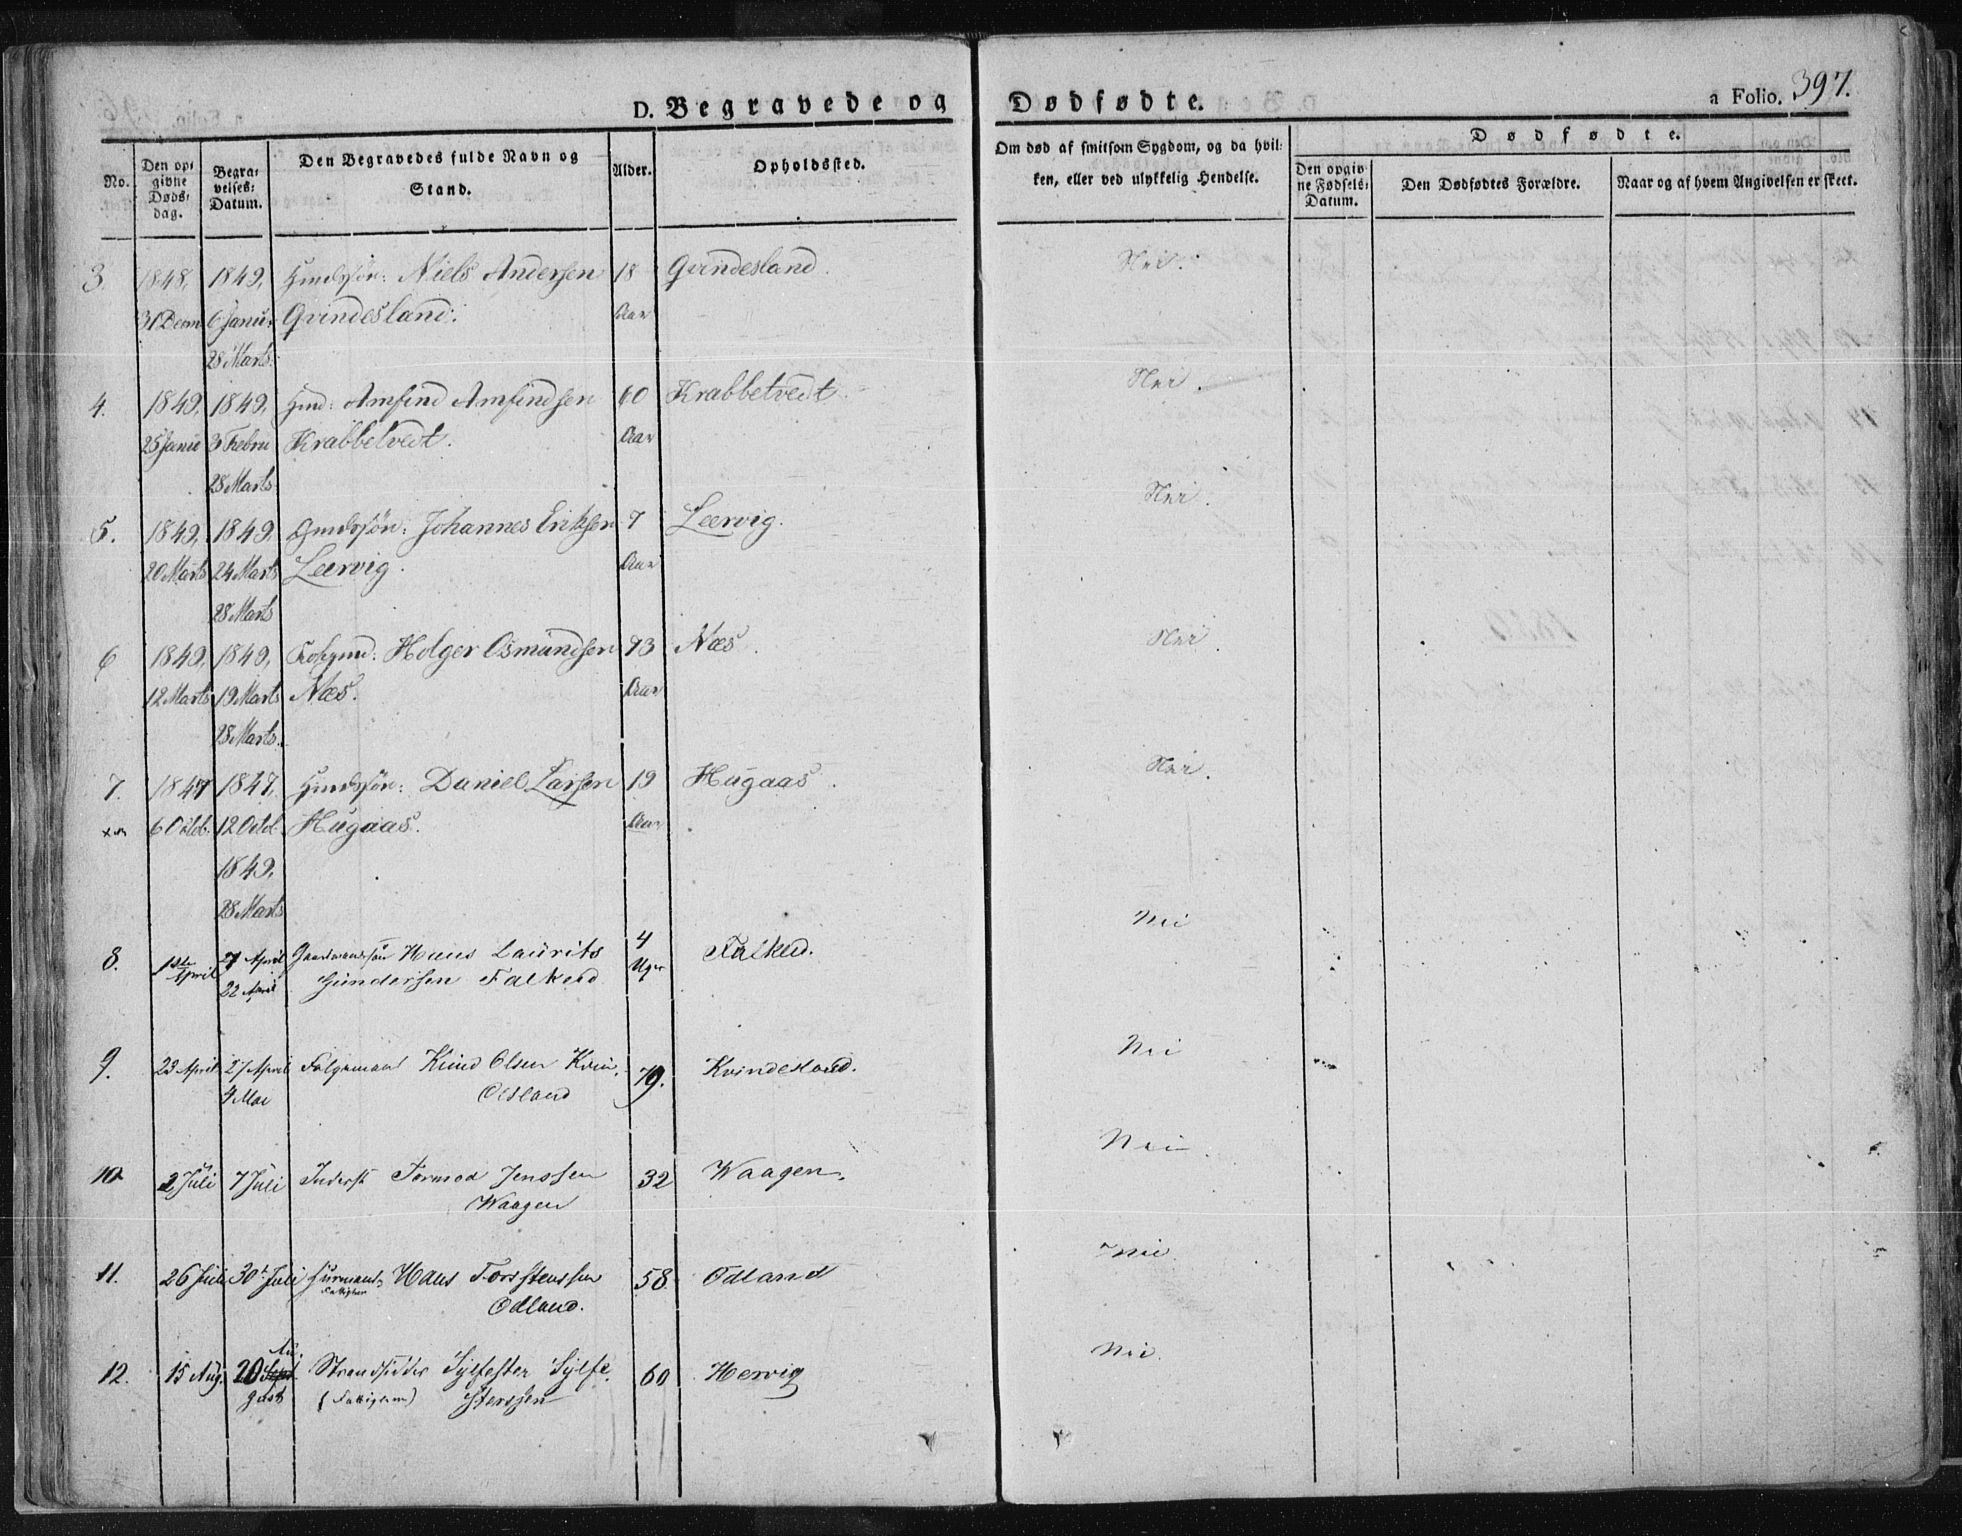 D. Begravede og Dødfødte. a Folio. 397.
No.
Den opgivne Dødsdag.
Begravelses: Datum.
Den Begravedes fulde Navn og Stand.
Alder.
Opholdssted.
Om død af smitsom Sygdom, og da hvilken, eller ved ulykkelig Hendelse.
Dødfødte.
Den opgivne Fødsels: Datum.
Den Dødfødtes Forældre.
Naar og af hvem Angivelsen er skeet.
3. 1848, 1849, Niels Andersen 18 Gvindesland. Nei.
31 Decm 6 Janu: Gvindesland. Aar
28 Marts.
4. 1849, 1849, Amfind Amfindsen 60 Krabbetvedt. Nei.
25 Janu 3 Febru Krabbetvedt. Aar
28 Marts
5. 1849, 1849, Johannes Eriksen 7 Leervig. Nei.
20 Marts 24 Marts Leervig. Aar
28 Marts
6 1849, 1849, Holger Osmundsen 73 Næs. Nei.
12 Marts 19 Marts Næs. Aar
28 Marts.
7. 1847 1847, Daniel Larsen 19 Hugaas. Nei.
6 Octob. 12 Octob. Hugaas. Aar
1849,
28 Marts
8. 1ste April 7 April Gaardmandssøn Hans Laurits 4 Uger Falked. Nei
22 April Gundersen Falked
9. 23 April 27 April Folgemand Knud Olsen Kvin- 79. Kvindesland. Nei
4 Mai desland
10. 2 Juli 7 Juli Inderst Tormod Jenssen 32 Waagen. Nei.
Waagen
11. 26 Juli 30t Juli Huusmand Hans Torsstenssen 58. Odland Nei
Fattiglem Odland.
12. 15 Aug. 20 August Strandsidder Sylfester Sylfe- 60 Hervig Nei.
(Fattiglem) sterssen